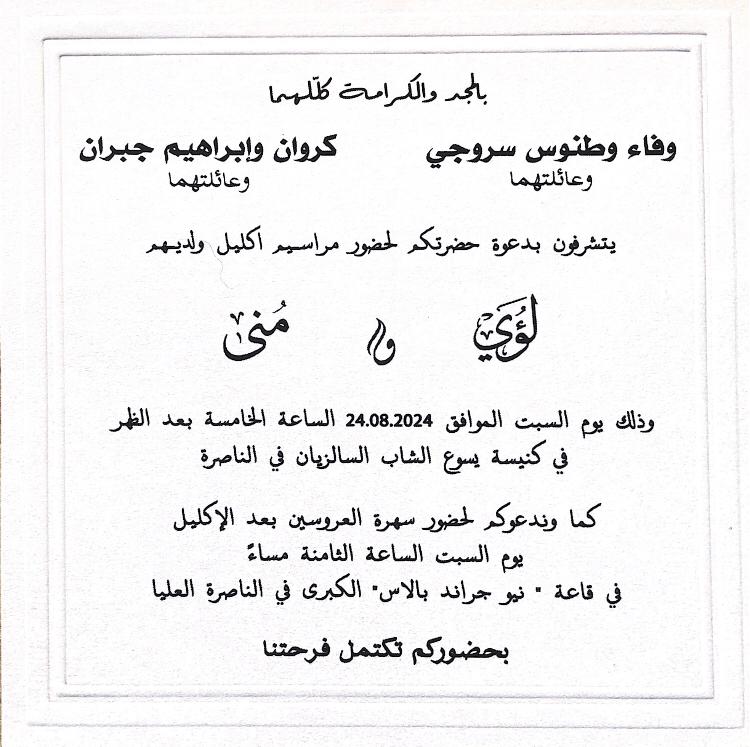 بالمجد والكرامة كلّلهما
وفاء وطنوس سروجي كروان وإبراهيم جبران
وعائلتهما وعائلتهما
يتشرفون بدعوة حضرتكم لحضور مراسيم اكليل ولديهم
لُؤي و مُنى
وذلك يوم السبت الموافق 24.08.2024 الساعة الخامسة بعد الظهر
في كنيسة يسوع الشاب السالزيان في الناصرة
كما وندعوكم لحضور سهرة العروسين بعد الإكليل
يوم السبت الساعة الثامنة مساءً
في قاعة " نيو جراند بالاس" الكبرى في الناصرة العليا
بحضوركم تكتمل فرحتنا